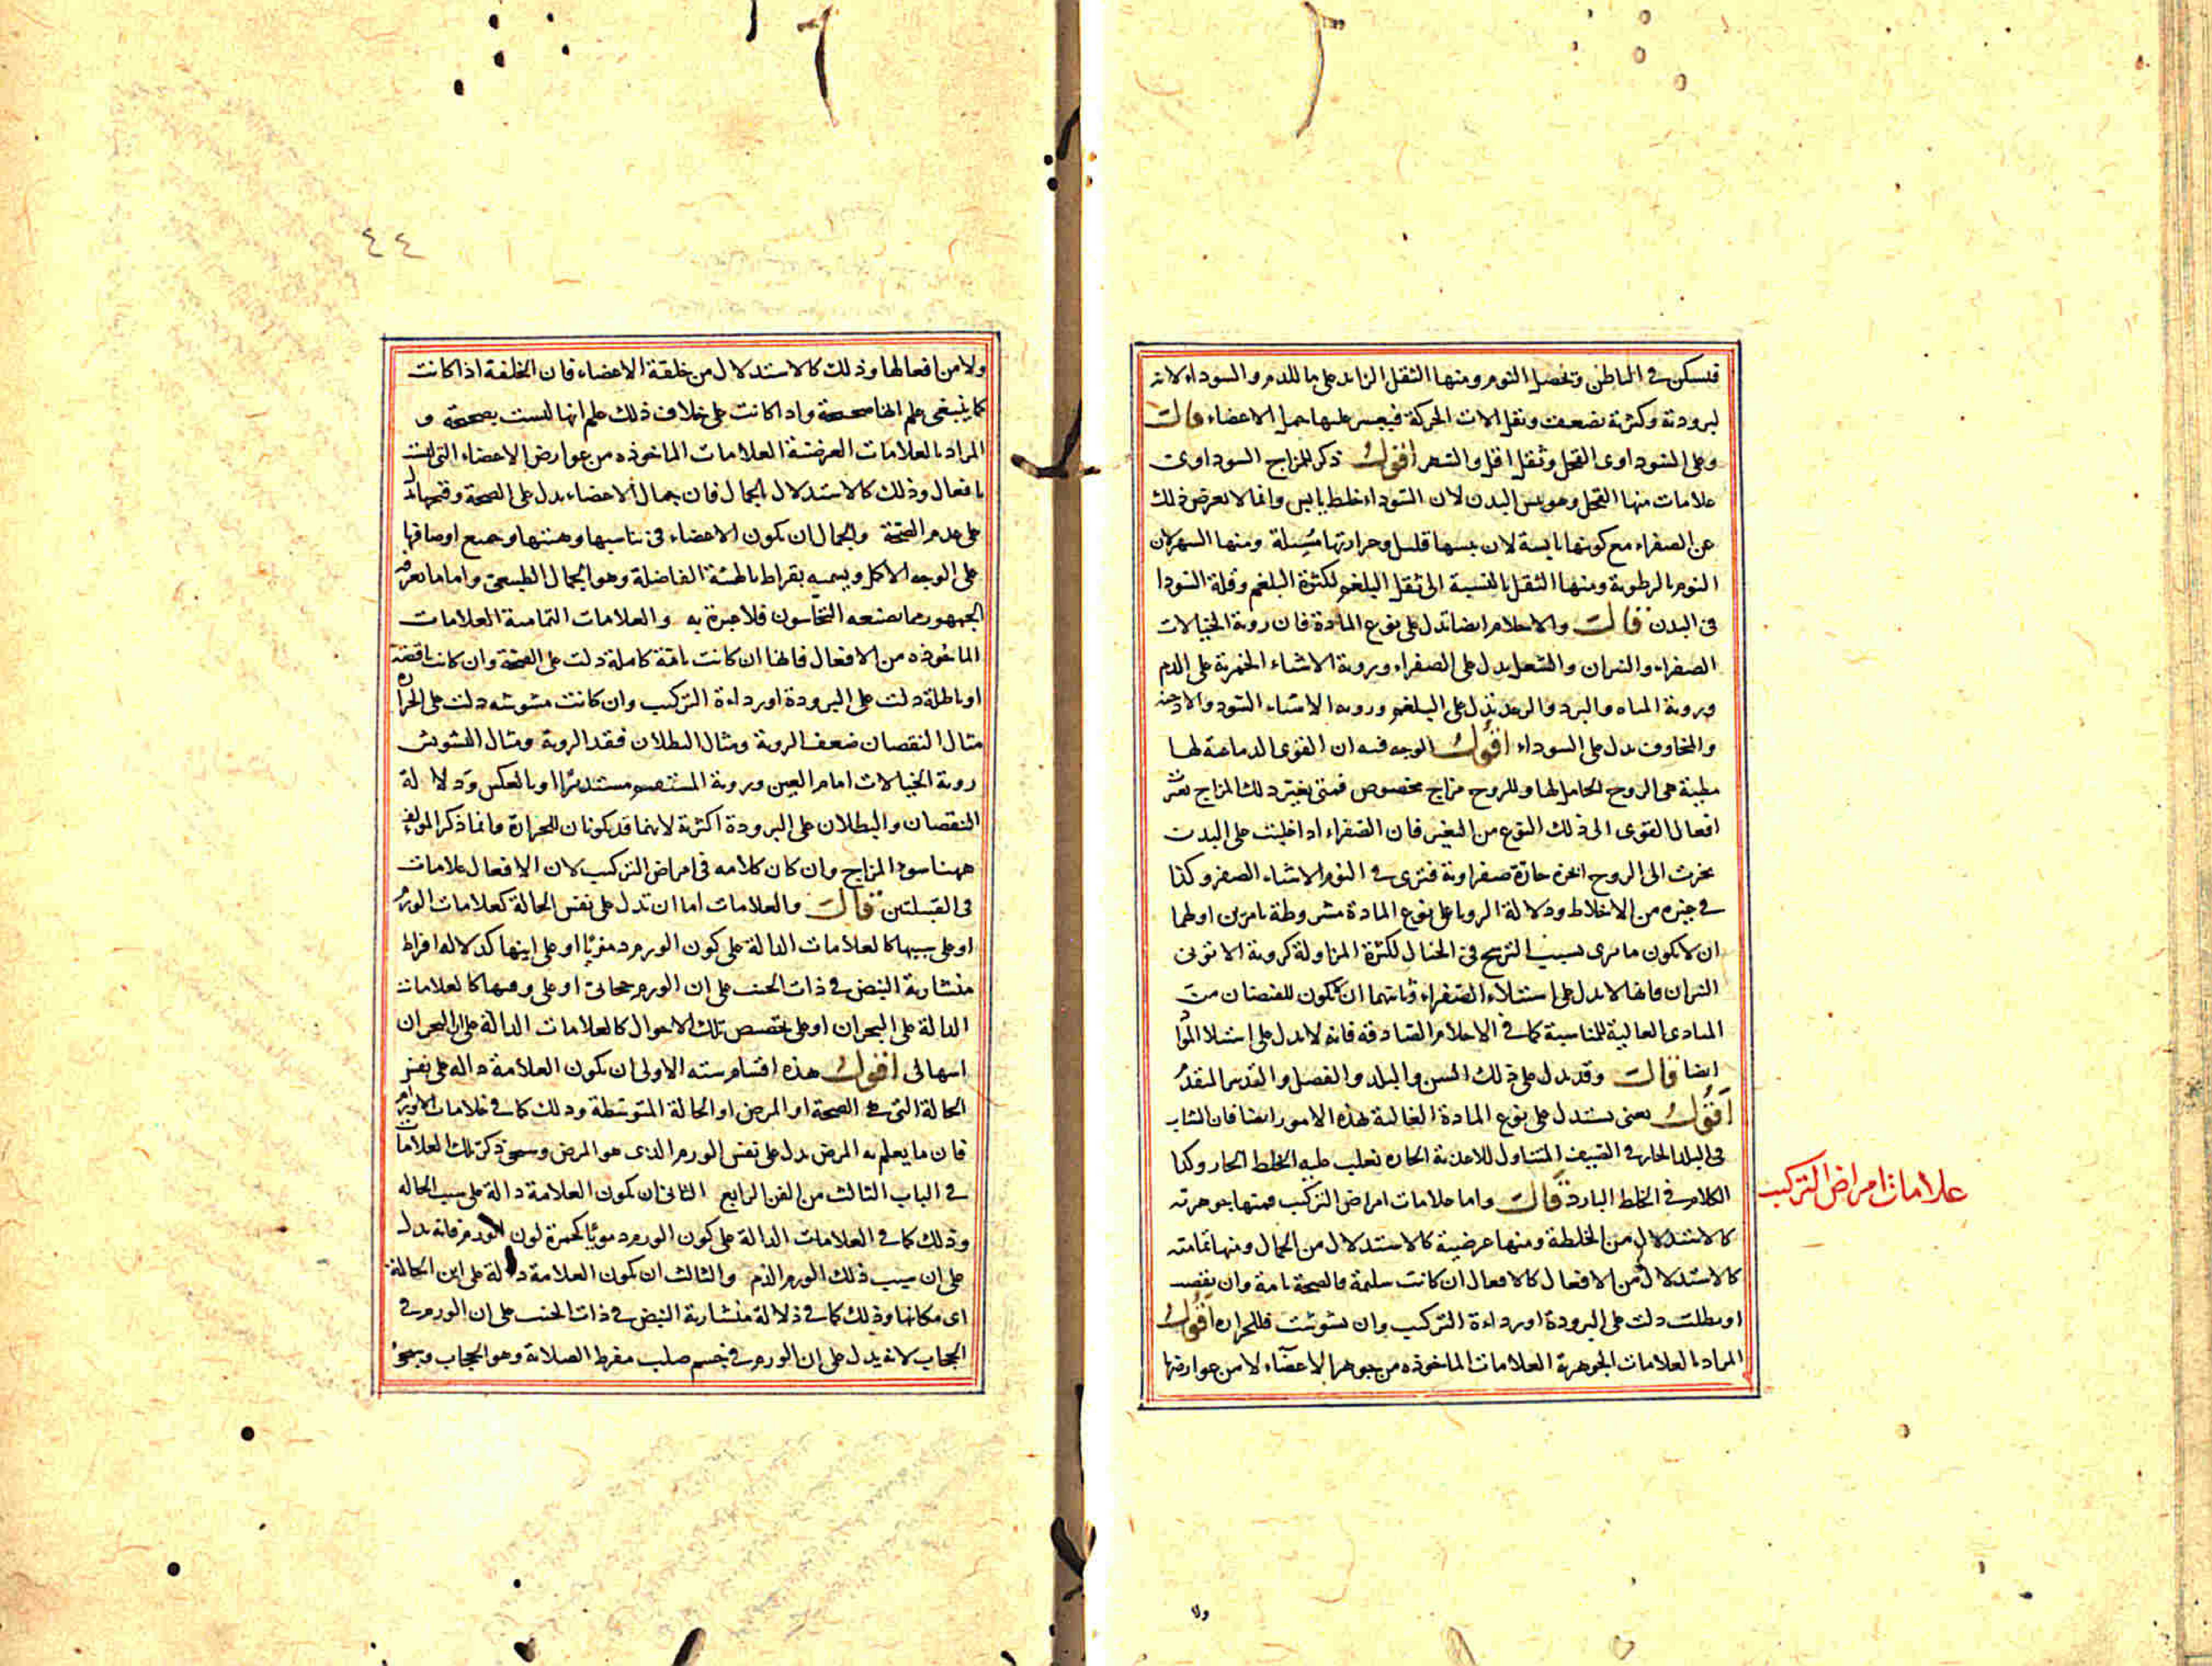 فيسكن في الباطن ويحصل النوم ومنها الثقل الزايد على ما للدم والسوداء لانه
لبرودته وكثرته يضعف ويثقل الات الحركة فيعسر عليها حمل الاعضاء قال
وعلى السوداوى القحل وثقل اقل والسهر اقول ذكر للمزاج السوداوى
علامات منها القحل وهو يبس البدن لان السوداء خلط يابس وانما لا يعرض ذلك
عن الصفراء مع كونها يابسة لان يبسها قليل وحرارتها مسيلة ومنها السهر لان
النوم بالرطوبة ومنها الثقل بالنسبة الى ثقل البلغم لكثرة البلغم وقلة السودا
فى البدن قال والاحلام ايضا تدل على نوع المادة فان روية الخيالات
الصفراء والنيران والشعل يدل على الصفراء وبروية الاشياء الحمرية على الدم
وبروية المياه والبرد والرعد تدل على البلغم وروية الاشياء السود والادخنة
والمخاوف يدل على السوداء اقول الوجه فيه ان القوى الدماغية لها
مطية هى الروح الحامل لها وللروح مزاج مخصوص فمتى يغير ذلك المزاج تغير
افعال القوى الى ذلك النوع من التغير فان الصفراء اذا غلبت على البدن
بخرت الى الروح ابخرة حارة صفراوية فترى في النوم الاشياء الصفر وكذا
في غيره من الاخلاط ودلالة الرويا على نوع المادة مشروطة بامرين اولهما
ان لا يكون ما يرى بسبب الترسخ فى الخيال لكثرة المزاولة كروية الاتونى
النيران فانها لا تدل على استيلاء الصفراء وثانيهما ان لا يكون للفيضان من
المبادى العالية للمناسبة كما في الاحلام الصادقة فانه لا يدل على استيلا المواد
ايضا قال وقد يدل على ذلك السن والبلد والفصل والتدبير المتقدم
اقول يعنى يستدل على نوع المادة الغالبة بهذه الامور ايضا فان الشاب
فى البلد الحار في الصيف المتناول للاغذية الحارة يغلب عليه الخلط الحار وكذا
الكلام في الخلط البارد قال واما علامات امراض التركيب فمنها جوهرية
كالاستدلال من الخلقة ومنها عرضية كالاستدلال من الجمال ومنها تمامية
كالاستدلال من الافعال كالافعال ان كانت سليمة فالصحة تامة وان نقصت
او بطلت دلت على البرودة او رداءة التركيب وان تشوشت فللحرارة اقول
المراد بالعلامات الجوهرية العلامات الماخوذه من جوهر الاعضاء لا من عوارضها
علامات امراض التركيب
ولا
٤٤
ولا من افعالها وذلك كالاستدلال من خلقة الاعضاء فان الخلقة اذا كانت
كما ينبغى علم انها صحيحة واذا كانت على خلاف ذلك علم انها ليست بصحيحة و
المراد بالعلامات العرضية العلامات الماخوذه من عوارض الاعضاء التى ليست
بافعال وذلك كالاستدلال بالجمال فان جمال الاعضاء يدل على الصحة وقبحها يدل
على عدم الصحة والجمال ان يكون الاعضاء فى تناسبها وهيئتها وجميع اوصافها
على الوجه الاكمل ويسميه بقراط بالهيئة الفاضلة وهو الجمال الطبيعى واما ما يعرفه
الجمهور مما يصنعه النخاسون فلا عبرة به والعلامات التمامية العلامات
الماخوذه من الافعال فانها ان كانت تامة كاملة دلت على الصحة وان كانت ناقصة
او باطلة دلت على البرودة او رداءة التركيب وان كانت مشوشه دلت على الحرارة
مثال النقصان ضعف الروية ومثال البطلان فقد الروية ومثال التشويش
روية الخيالات امام العين وبروية المستقيم مستديرا او بالعكس ودلالة
النقصان والبطلان على البرودة اكثرية لانهما قد يكونان للحرارة وانما ذكر المولف
ههنا سوء المزاج وان كان كلامه فى امراض التركيب لان الافعال علامات
فى القبيلتين قال والعلامات اما ان تدل على نفس الحالة كعلامات الورم
او على سببها كالعلامات الدالة على كون الورم دمويا او على اينها كدلالة افراط
منشارية النبض في ذات الجنب على ان الورم حجابى او على وقتها كالعلامات
الدالة على البحران او على تخصيص تلك الاحوال كالعلامات الدالة على ان البحران
اسهالى اقول هذه اقسام سته الاولى ان يكون العلامة دالة على نفس
الحالة التى هى الصحة او المرض او الحالة المتوسطة وذلك كما في علامات الاورام
فان ما يعلم به المرض يدل على نفس الورم الذى هو المرض وسيجئ ذكر تلك العلامات
في الباب الثالث من الفن الرابع الثانى ان يكون العلامة دالة على سبب الحالة
وذلك كما في العلامات الدالة على كون الورم دمويا كحمرة لون الورم فانه يدل
على ان سبب ذلك الورم الدم والثالث ان يكون العلامة دالة على اين الحالة
اى مكانها وذلك كما في دلالة منشارية النبض في ذات الجنب على ان الورم في
الحجاب لانه يدل على ان الورم في جسم صلب مفرط الصلابة وهو الحجاب وسيجئ